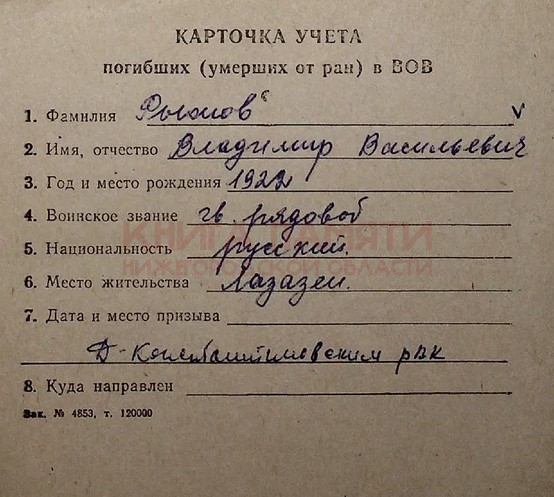 КАРТОЧКА УЧЕТА
погибших (умерших от ран) в ВОВ
1. Фамилия
2. Имя, отчество Владимир Васильевич
3. Год и место рождения 1922
4. Воинское звание гв. рядовой
КНИГА ПАМЯТИ
5. Национальность русский.
НИЖЕГОРОДСКОЙ ОБЛАСТИ
6. Место жительства Лазазеи.
7. Дата и место призыва
Д-Константиновским рвк
8. Куда направлен
Зак. № 4853, т. 120000